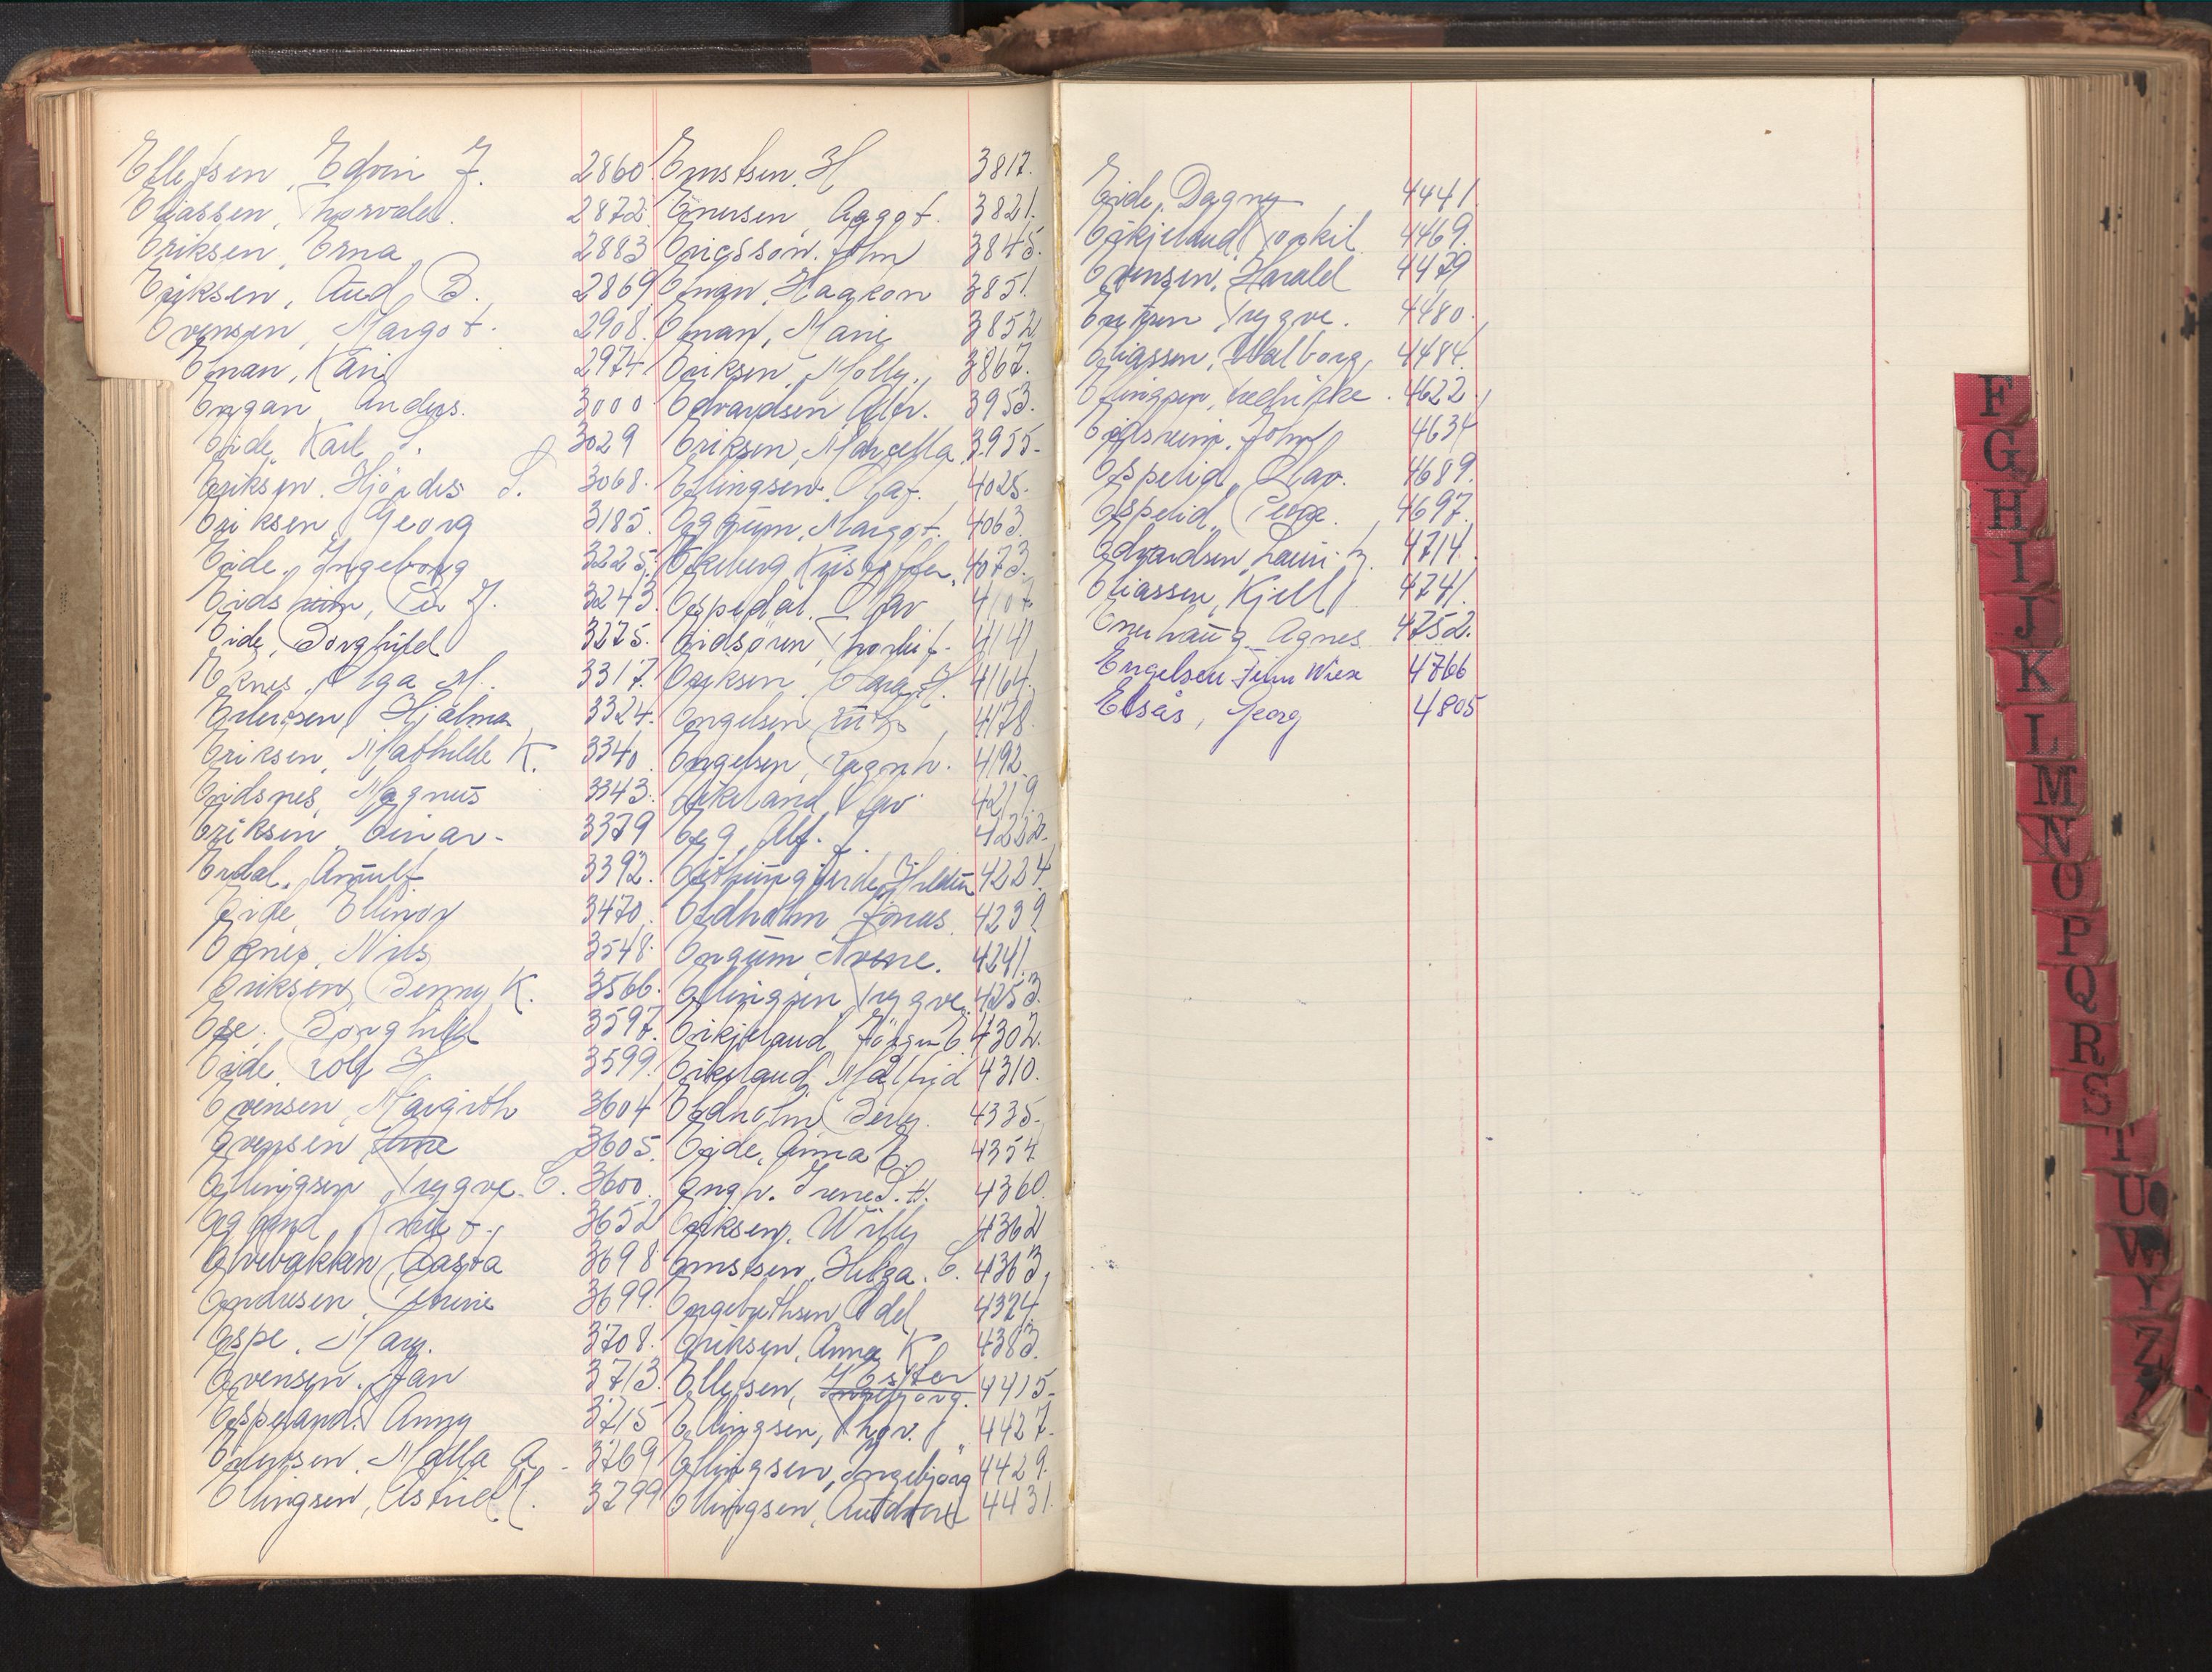 Ellefsen, Edvin J. 2860
Eliassen, Thorvald. 2872
Eriksen, Erna 2883
Eriksen, Aud B. 2869
Evensen, Margot. 2908.
Eman, Kari 2974
Engan Anders. 3000
Eide, Karl 3029
Eriksen. Hjördis S. 3068.
Eriksen, Georg 3185.
Eide, Ingeborg 3225.
Eidsheim, Per J. 3243.
Eide, Borghild 3275.
Eknes, Olga M. 3317.
Hjalmar 3324.
Eriksen, Mathilde K. 3340.
Eidsnes, Magnus 3343.
Eriksen Einar- 3379
Erdal, Arnulf 3392.
Eide, Ellinor 3470.
Eknes, Nils 3548.
Eriksen, Benny K. 3566.
Borghild 3597.
Eide, Rolf H. 3599.
Evensen, Margith 3604
Evensen 3605.
Ellingsen Trygve. C. 3600.
Knut. 3652
Elvebakken, Kasva 3698
Endresen 3699.
Espe, Mary. 3708.
Evensen. Jan 3713.
Espeland. Anny 3715
Malla A. 3769
Ellingsen, Astrid M. 3799
Ernstsen. H 3817.
Enersen, Aagot. 3821.
Ericsson. John 3845.
Eman, Haakon 3851.
Eman, Marie 3852
Eriksen, Molly. 3867.
Edvardsen Alfr. 3953.
Eriksen, Marcella 3955-
Ellingsen. Olaf. 4025.
Eggum, Margot. 4063.
Ekeberg Kristoffer. 4073.
Espedal. Olav 4107
Eidsøren Thorleif. 4141
Eriksen. 4164.
Engelsen, Ruth 4178.
Engelsen, Ragnh. 4192.
Eikeland, Olav 4219.
Egg, Alf. J. 4222.
Eithungjerde, Halldis 4224
Eldholm Jonas. 4239
Engum, Arne. 4241.
Ellingsen, Trygve. 4253.
Eikjeland, Jörgen E. 4302.
Eikeland, Målfrid 4310.
Eldholm Berg. 4335.
Eide, Anna E. 4354
Engh. Irene S. H. 4360.
Eriksen, Willy 4362
Ernstsen, Helga. C. 4363.
Engebrethsen Odd 4374
Eriksen, Anna K. 4383.
Ellefsen, Ester Ingebjorg. 4415-
Ellingsen, Thorv. J. 4427.
Ellingsen, Ingebjørg 4429.
Ellingsen, 4431.
Eide, Dagny 4441
Eikjeland, Torkil 4469.
Evensen, Harald 4479
Eriksen Trygve. 4480.
Eliassen, Walborg, 4484.
Ellingsen, Fredrikke. 4622.
Eidsheim, John 4634
Espelid, Olav. 4689.
Espelid, 4697.
Edvardsen, Lauritz. 4714.
Eliassen, Kjell 4741.
Enerhaug Agnes 4752.
Engelsen Finn Wiese 4766
Elsås, Georg 4805
F
G
H
I
J
K
L
M
N
O
P
Q
R
S
T
U
W
Y
Z